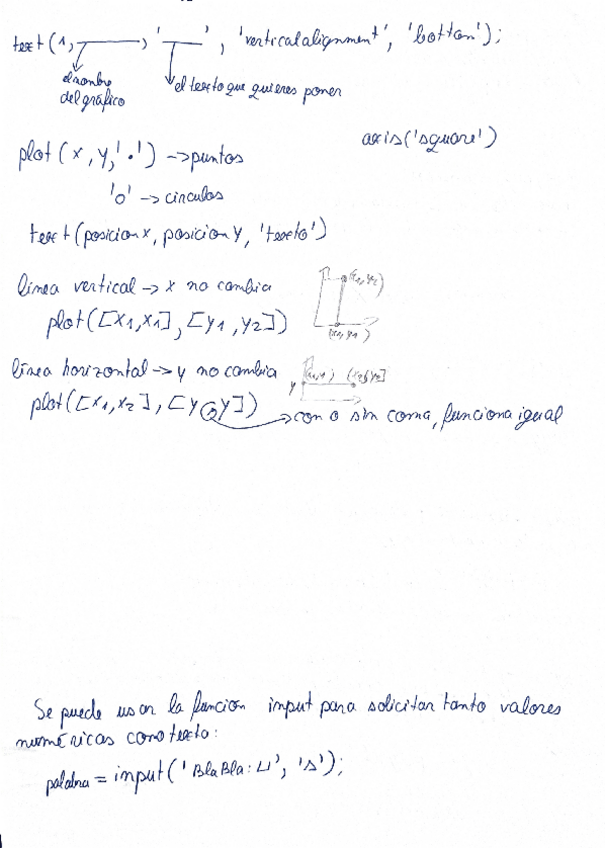 text(1, ______, '____', 'verticalalignment', 'bottom');
el nombre
del gráfico
el texto que quieres poner
axis('square')
plot(x, y, '.') -> puntos
'o' -> circulos
text(posicion x, posicion y, 'texto')
linea vertical -> x no cambia
(x1, y2)
plot([x1, x1], [y1, y2])
(x1, y1)
línea horizontal -> y no cambia
y
plot([x1, x2], [y, y])
-> con o sin coma, funciona igual
Se puede usar la funcion input para solicitar tanto valores
numéricos como texto:
palabra = input('BlaBla:⊔', 's');